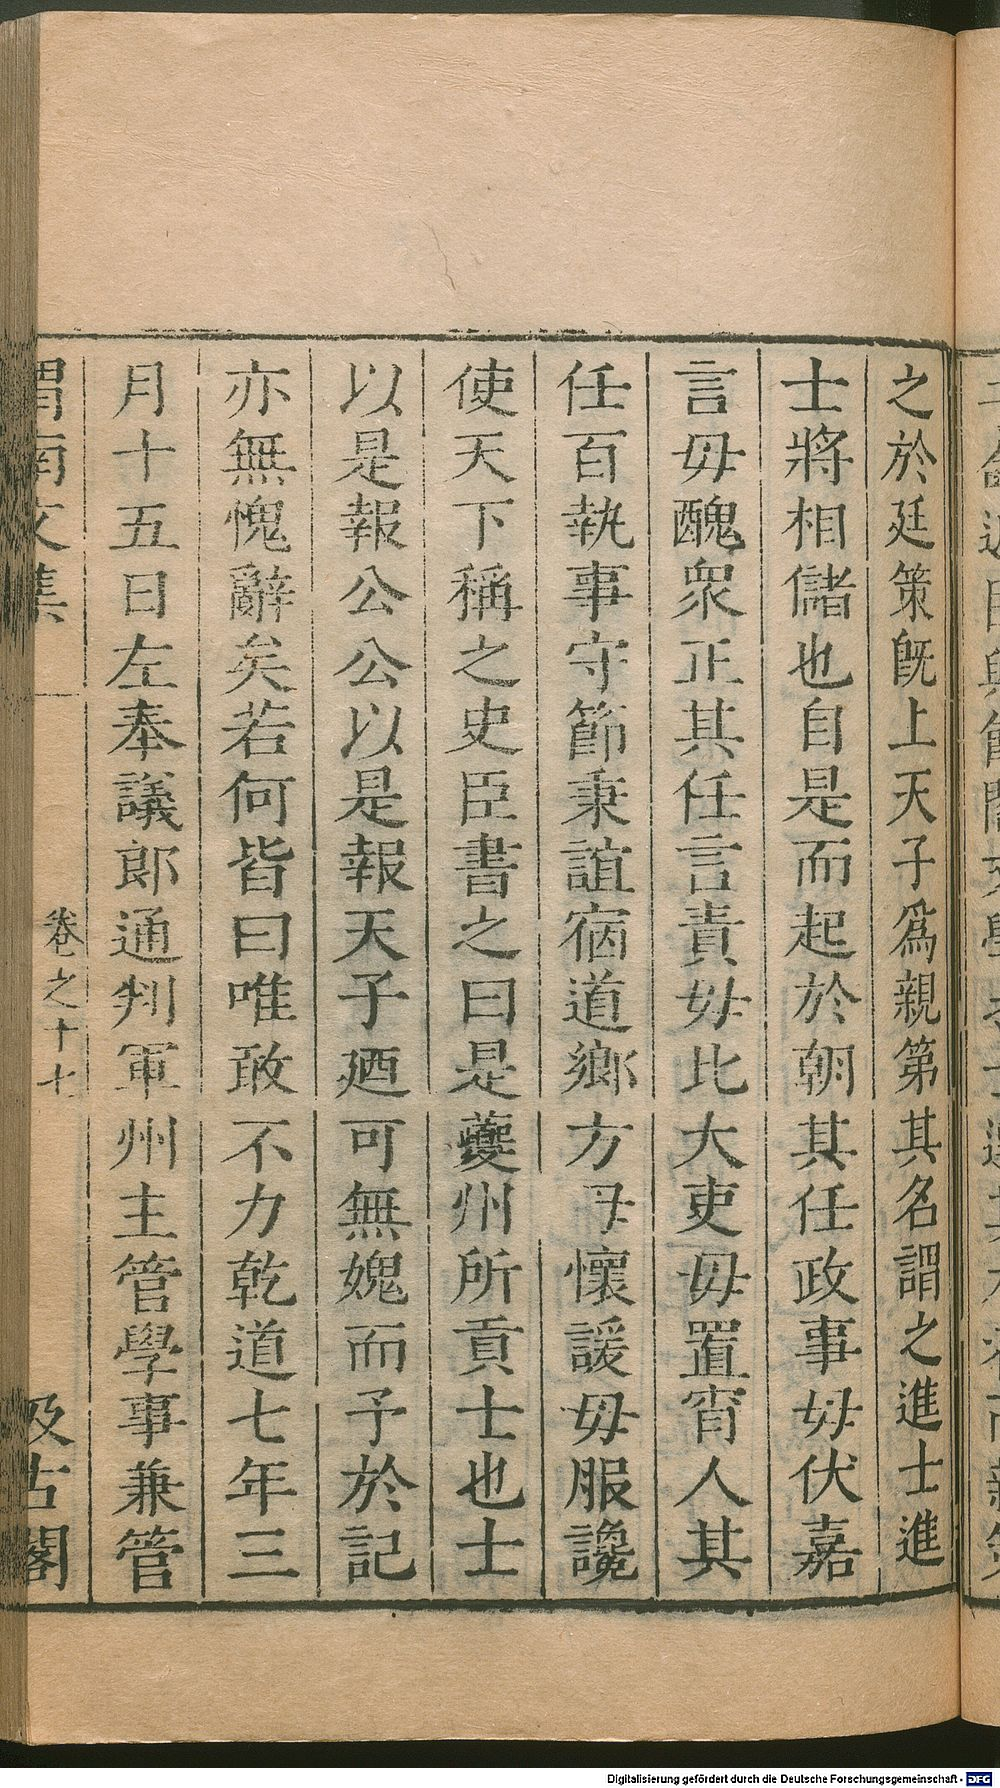 之於廷策旣上天子爲親第其名謂之進士進
士將相儲也自是而起於朝其任政事毋伏嘉
言毋醜衆正其任言責毋比大吏毋置宵人其
任百執事守節秉誼宿道鄉方毋懷諼毋服讒
使天下稱之史臣書之曰是夔州所貢士也士
以是報公公以是報天子廼可無媿而予於記
亦無愧辭矣若何皆曰唯敢不力乾道七年三
月十五日左奉議郎通判軍州主管學事兼管
渭南文集 卷之十七 汲古閣
Digitalisierung gefördert durch die Deutsche Forschungsgemeinschaft - DFG